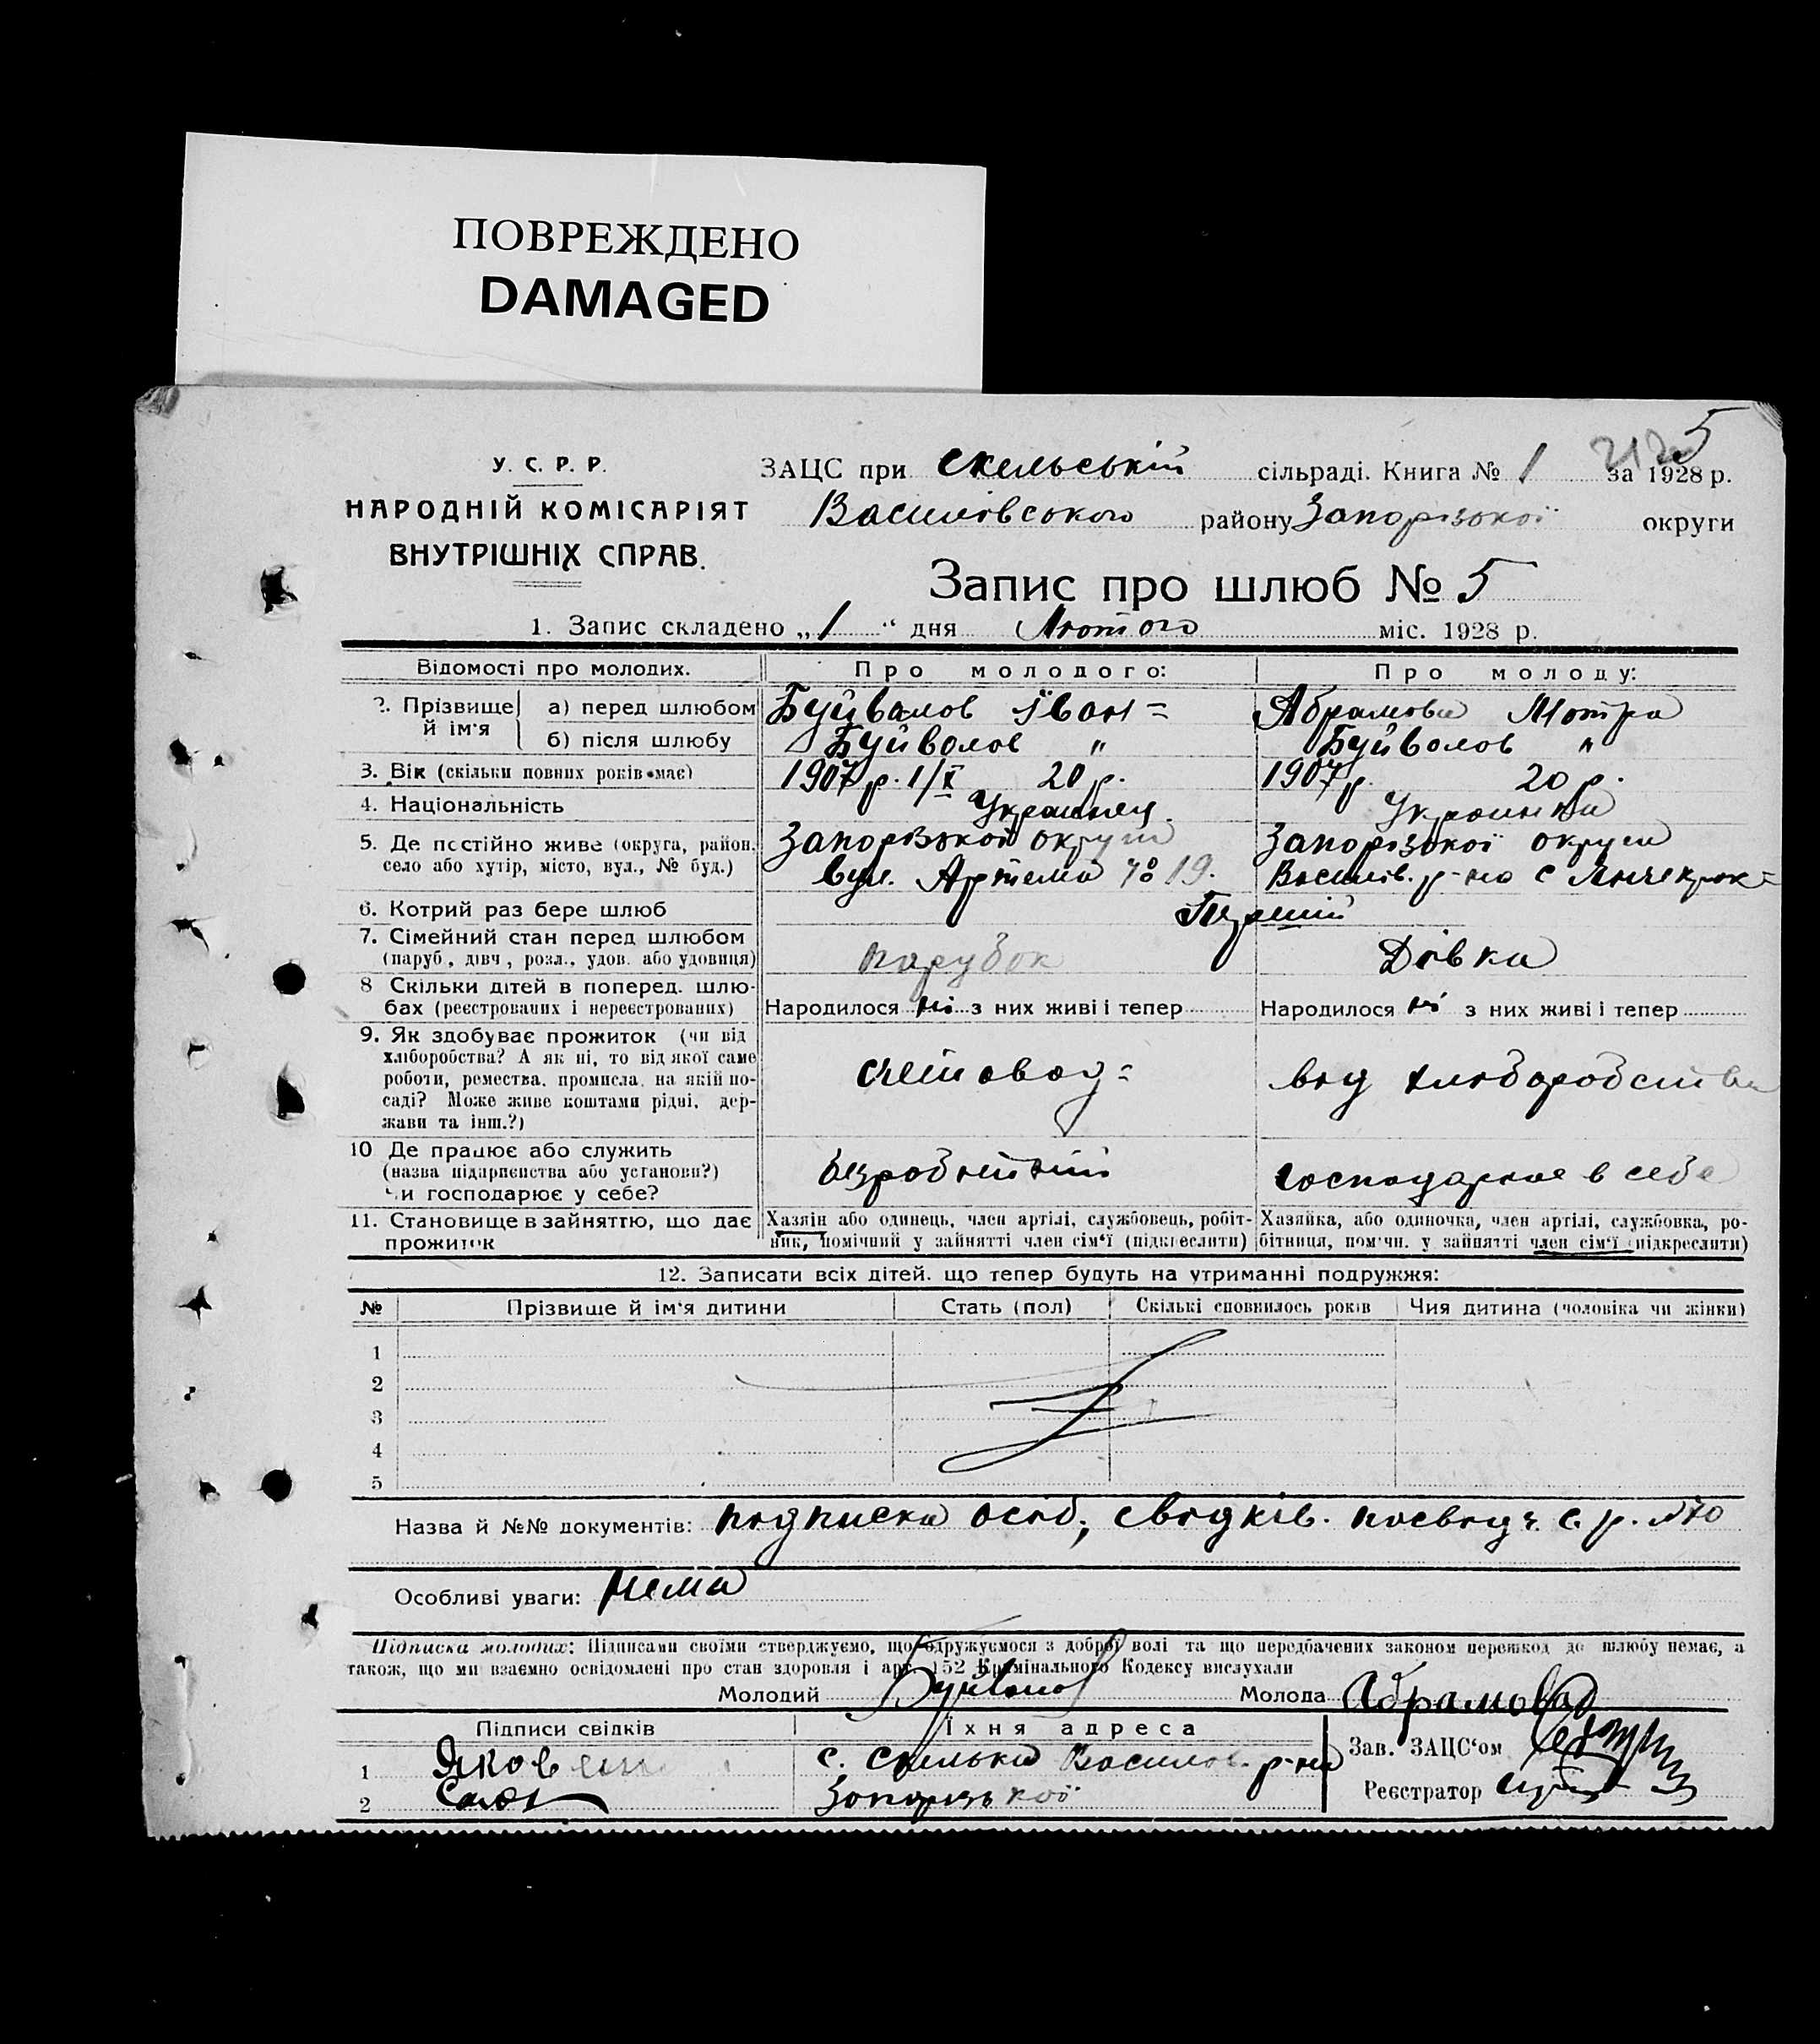 ПОВРЕЖДЕНО
DAMAGED
5
У. С. Р. Р.
НАРОДНІЙ КОМІСАРІЯТ
ВНУТРІШНІХ СПРАВ.
ЗАЦС при Скельській сільраді. Книга № 1 за 1928 р.
Василівського району Запорізької округи
Запис про шлюб № 5
1. Запис складено „1“ дня Лютого міс. 1928 р.
Відомості про молодих. Про молодого: Про молоду:
2. Прізвище й ім'я а) перед шлюбом Буйвалов Іван = Абрамова Мотра
б) після шлюбу Буйволов " Буйволов "
3. Вік (скільки повних років має) 1907 р. 1/X 20 р. 1907 р. 20 р.
4. Національність Украинец. Украинка
5. Де постійно живе (округа, район, Запорізькой округи Запорізької округи
село або хутір, місто, вул., № буд.) вул. Артема № 19. Василів. р-на с
6. Котрий раз бере шлюб Перший
7. Сімейний стан перед шлюбом
(паруб., дівч, розл., удов. або удовиця) парубок Дівка
8 Скільки дітей в поперед. шлю-
бах (реєстрованих і нереєстрованих) Народилося ні з них живі і тепер Народилося ні з них живі і тепер
9. Як здобуває прожиток (чи від
хліборобства? А як ні, то від якої саме
роботи, ремества, промисла, на якій по- счетовод= від хліборобства
саді? Може живе коштами рідні, дер-
жави та інш.?)
10 Де працює або служить
(назва підприєнства або установи?) безробітний господарює в себе
Чи господарює у себе?
11. Становище в зайняттю, що дає Хазяін або одинець, член артілі, службовець, робіт- Хазяйка, або одиночка, член артілі, службовка, ро-
прожиток ник, помічний у зайнятті член сім'ї (підкреслити) бітниця, помічн. у зайнятті член сім'ї (підкреслити)
12. Записати всіх дітей, що тепер будуть на утриманні подружжя:
№ Прізвище й ім'я дитини Стать (пол) Скількі сповнилось років Чия дитина (чоловіка чи жінки)
1
2
3
4
5
Назва й №№ документів: підписка осіб, свідків. посвідч. с. р. №70
Особливі уваги: Нема
Підписка молодих: Підписами своїми стверджуємо, що одружуємося з доброї волі та що передбачених законом перешкод до шлюбу немає, а
також, що ми взаємно освідомлені про стан здоровля і арт. 152 Крімінального Кодексу вислухали
Молодий Буйволов Молода Абрамова
Підписи свідків Їхня адреса
1 с. Скельки Василів. р-на Зав. ЗАЦС'ом
2 Запорізької Реєстратор